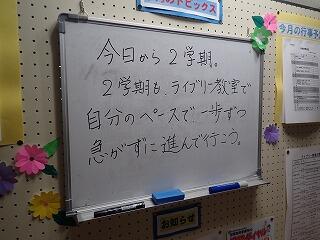 のトピックス
今月の行事予
今日から2学期。
2学期も、ライブリー教室で
自分のペースで一歩ずつ
急がずに進んで行こう。
お知らせ